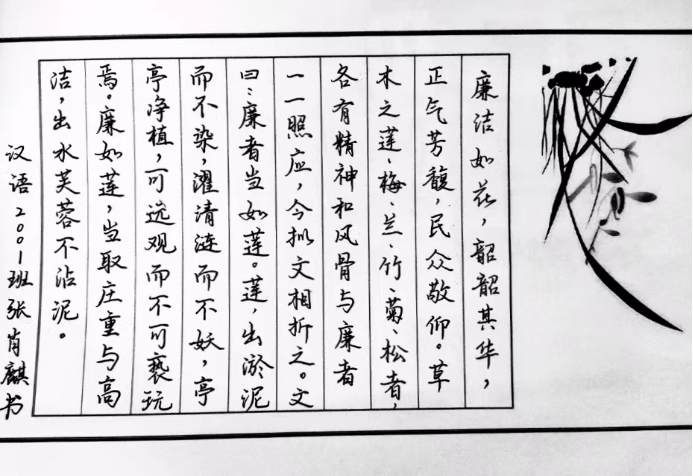 廉洁如花，韶韶其华，
正气芳馥，民众敬仰。草
木之莲、梅、兰、竹、菊、松者，
各有精神和风骨与廉者
一一照应，今拟文相折之。文
曰：廉者当如莲。莲，出淤泥
而不染，濯清涟而不妖，亭
亭净植，可远观而不可亵玩
焉。廉如莲，当取庄重与高
洁，出水芙蓉不沾泥。
汉语2001班张肖麒书